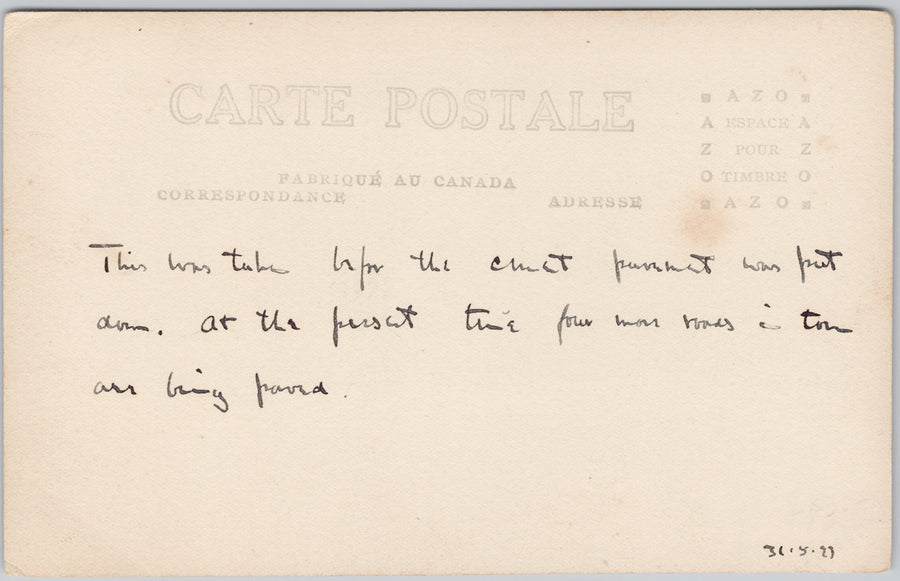 CARTE POSTALE
AZO
A ESPACE A
Z POUR Z
O TIMBRE O
AZO
FABRIQUÉ AU CANADA
CORRESPONDANCE
ADRESSE
This was taken before the cement pavement was put
down. At the present time four more roads in town
are being paved.
31.5.23